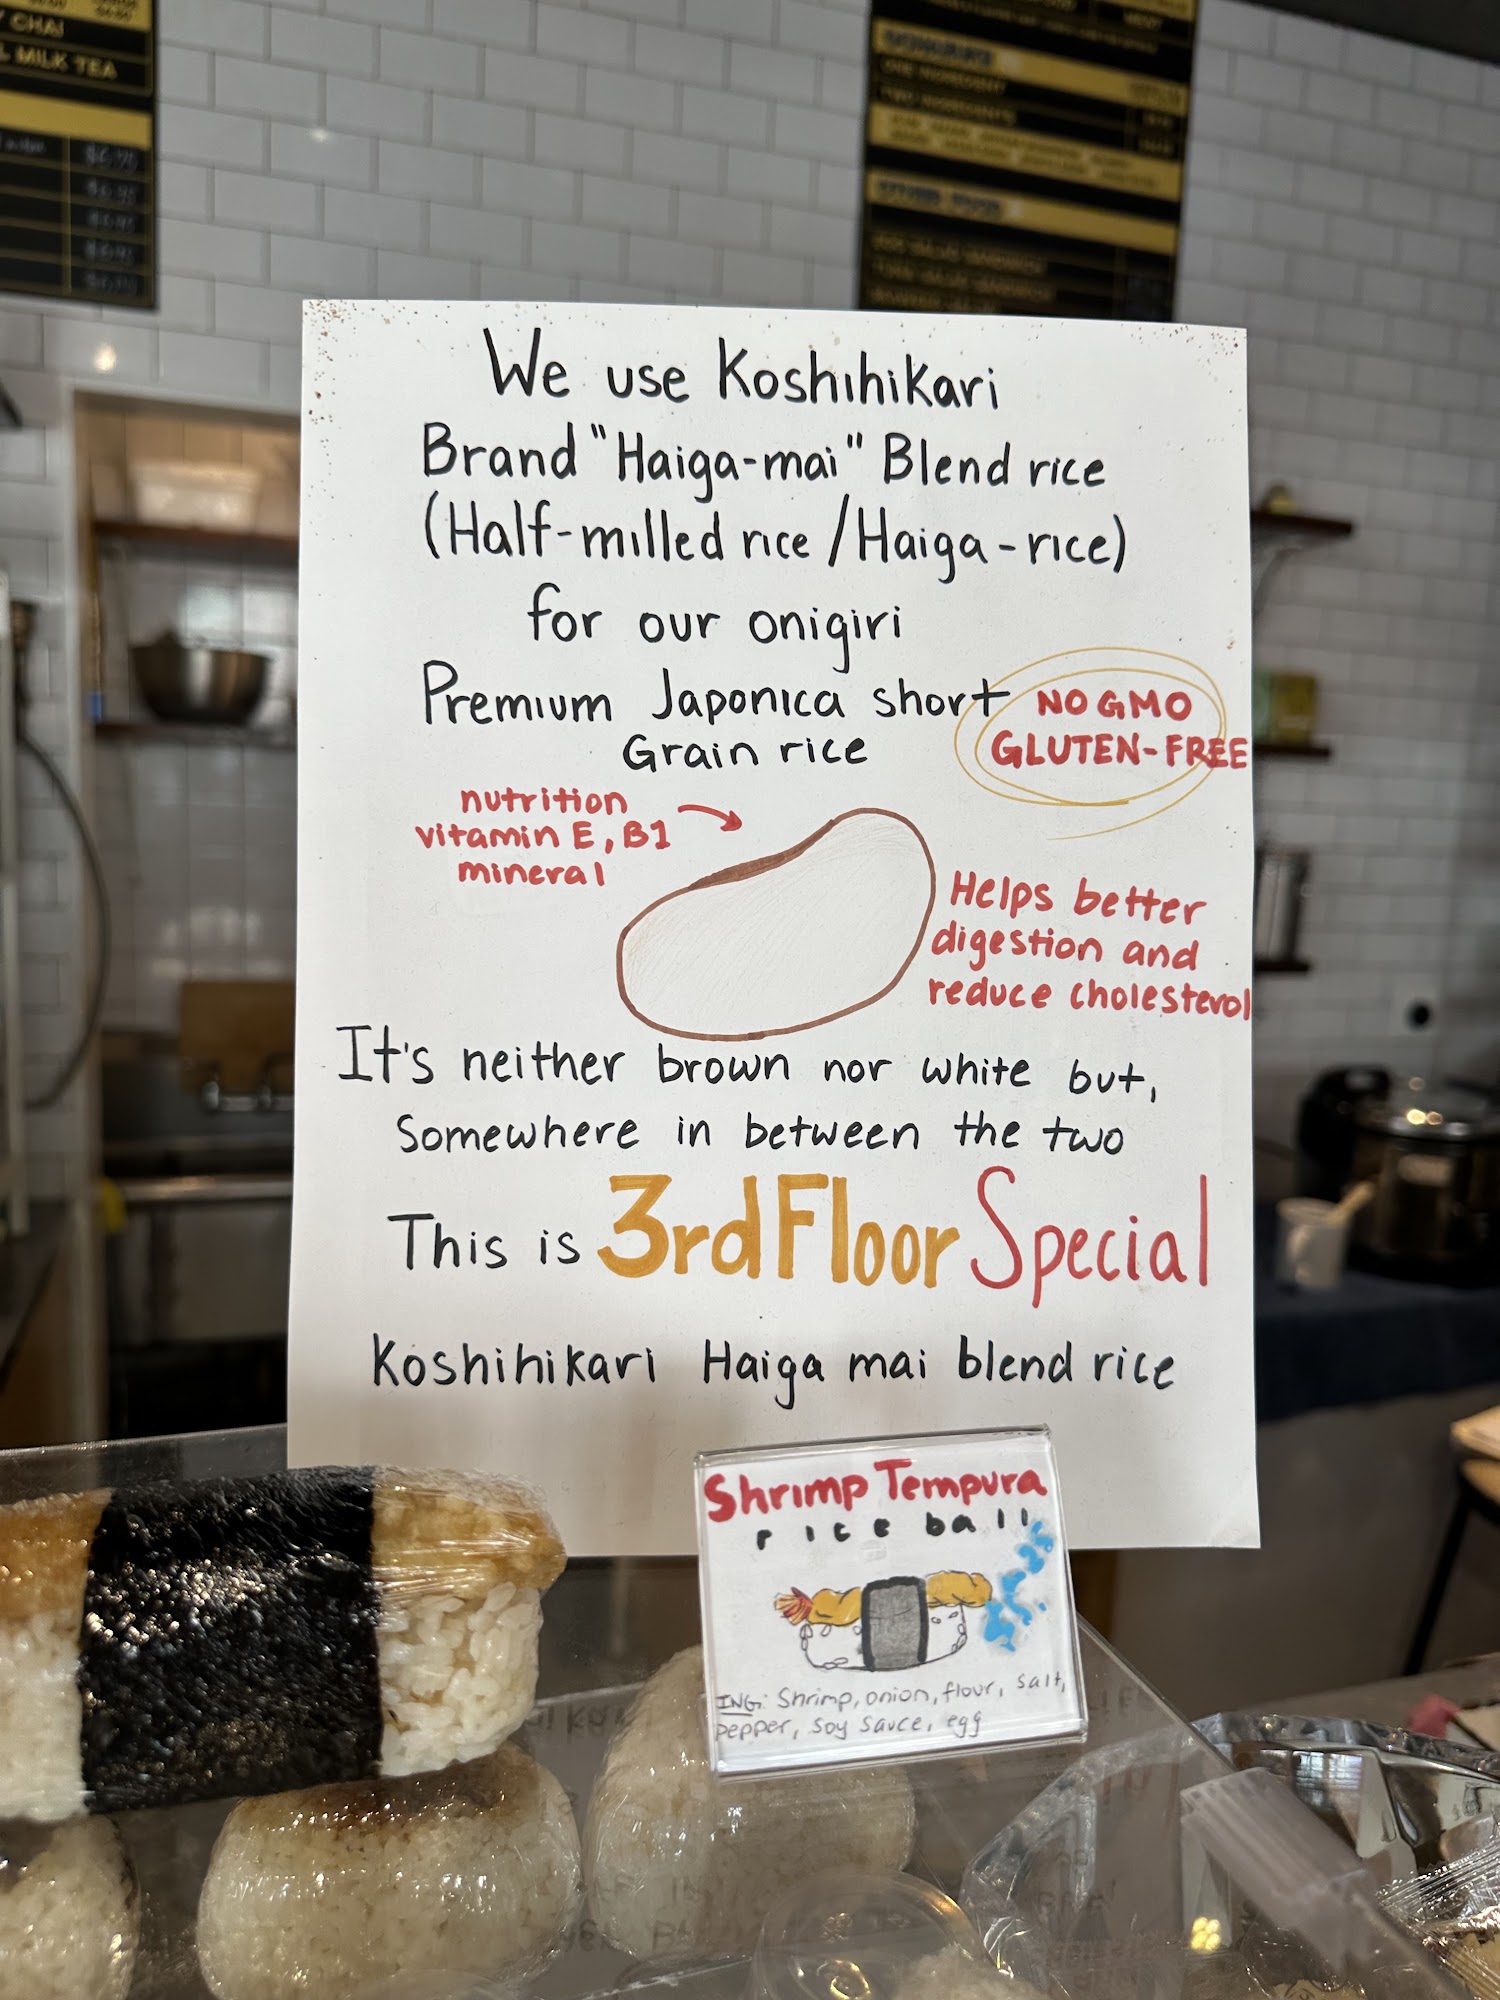 Y CHAI
L MILK TEA
ONE INGREDIENT
TWO INGREDIENTS
OTHER FOOD
EGG SALAD SANDWICH
TUNA SALAD SANDWICH
We use Koshihikari
Brand "Haiga-mai" Blend rice
(Half-milled rice / Haiga-rice)
for our onigiri
Premium Japonica short
Grain rice
NO GMO
GLUTEN-FREE
nutrition
vitamin E, B1
mineral
Helps better
digestion and
reduce cholesterol
It's neither brown nor white but,
Somewhere in between the two
This is 3rd Floor Special
Koshihikari Haiga mai blend rice
Shrimp Tempura
rice ball
ING: Shrimp, onion, flour, salt,
pepper, soy sauce, egg